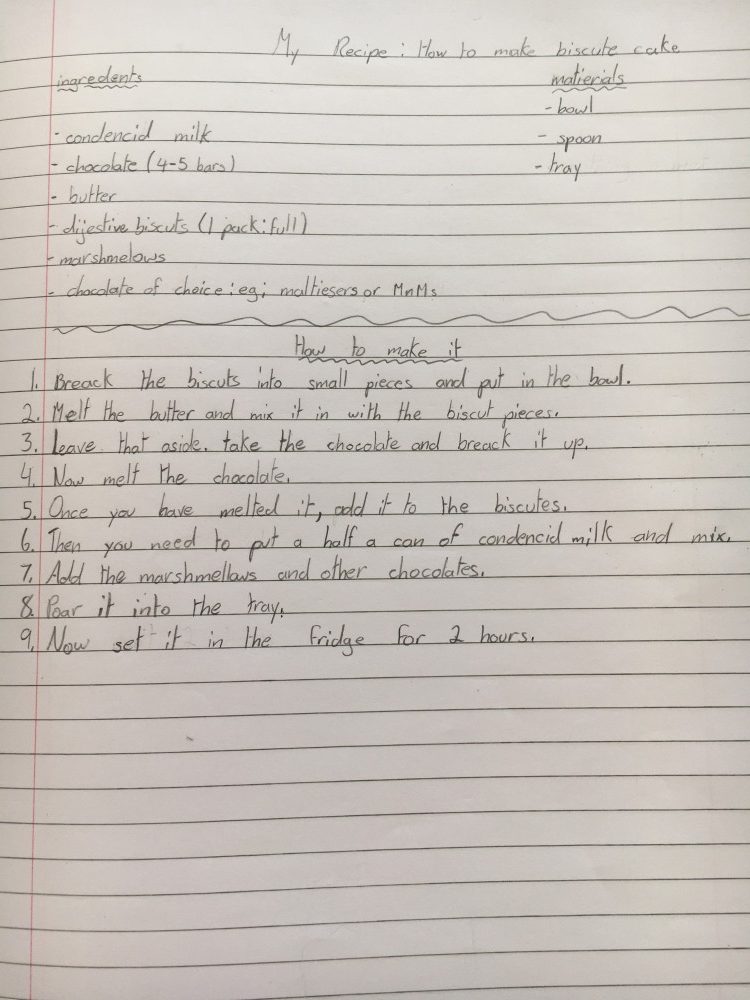 My Recipe: How to make biscute cake
ingredents
matierials
- bowl
- condencid milk
- spoon
- chocolate (4-5 bars)
- tray
- butter
- dijestive biscuts (1 pack:full)
- marshmelows
- chocolate of choice: eg; maltiesers or MnMs
How to make it
1. Breack the biscuts into small pieces and put in the bowl.
2. Melt the butter and mix it in with the biscut pieces.
3. Leave that aside. take the chocolate and breack it up.
4. Now melt the chocolate.
5. Once you have melted it, add it to the biscutes.
6. Then you need to put a half a can of condencid milk and mix.
7. Add the marshmellows and other chocolates.
8. Poar it into the tray.
9. Now set it in the fridge for 2 hours.